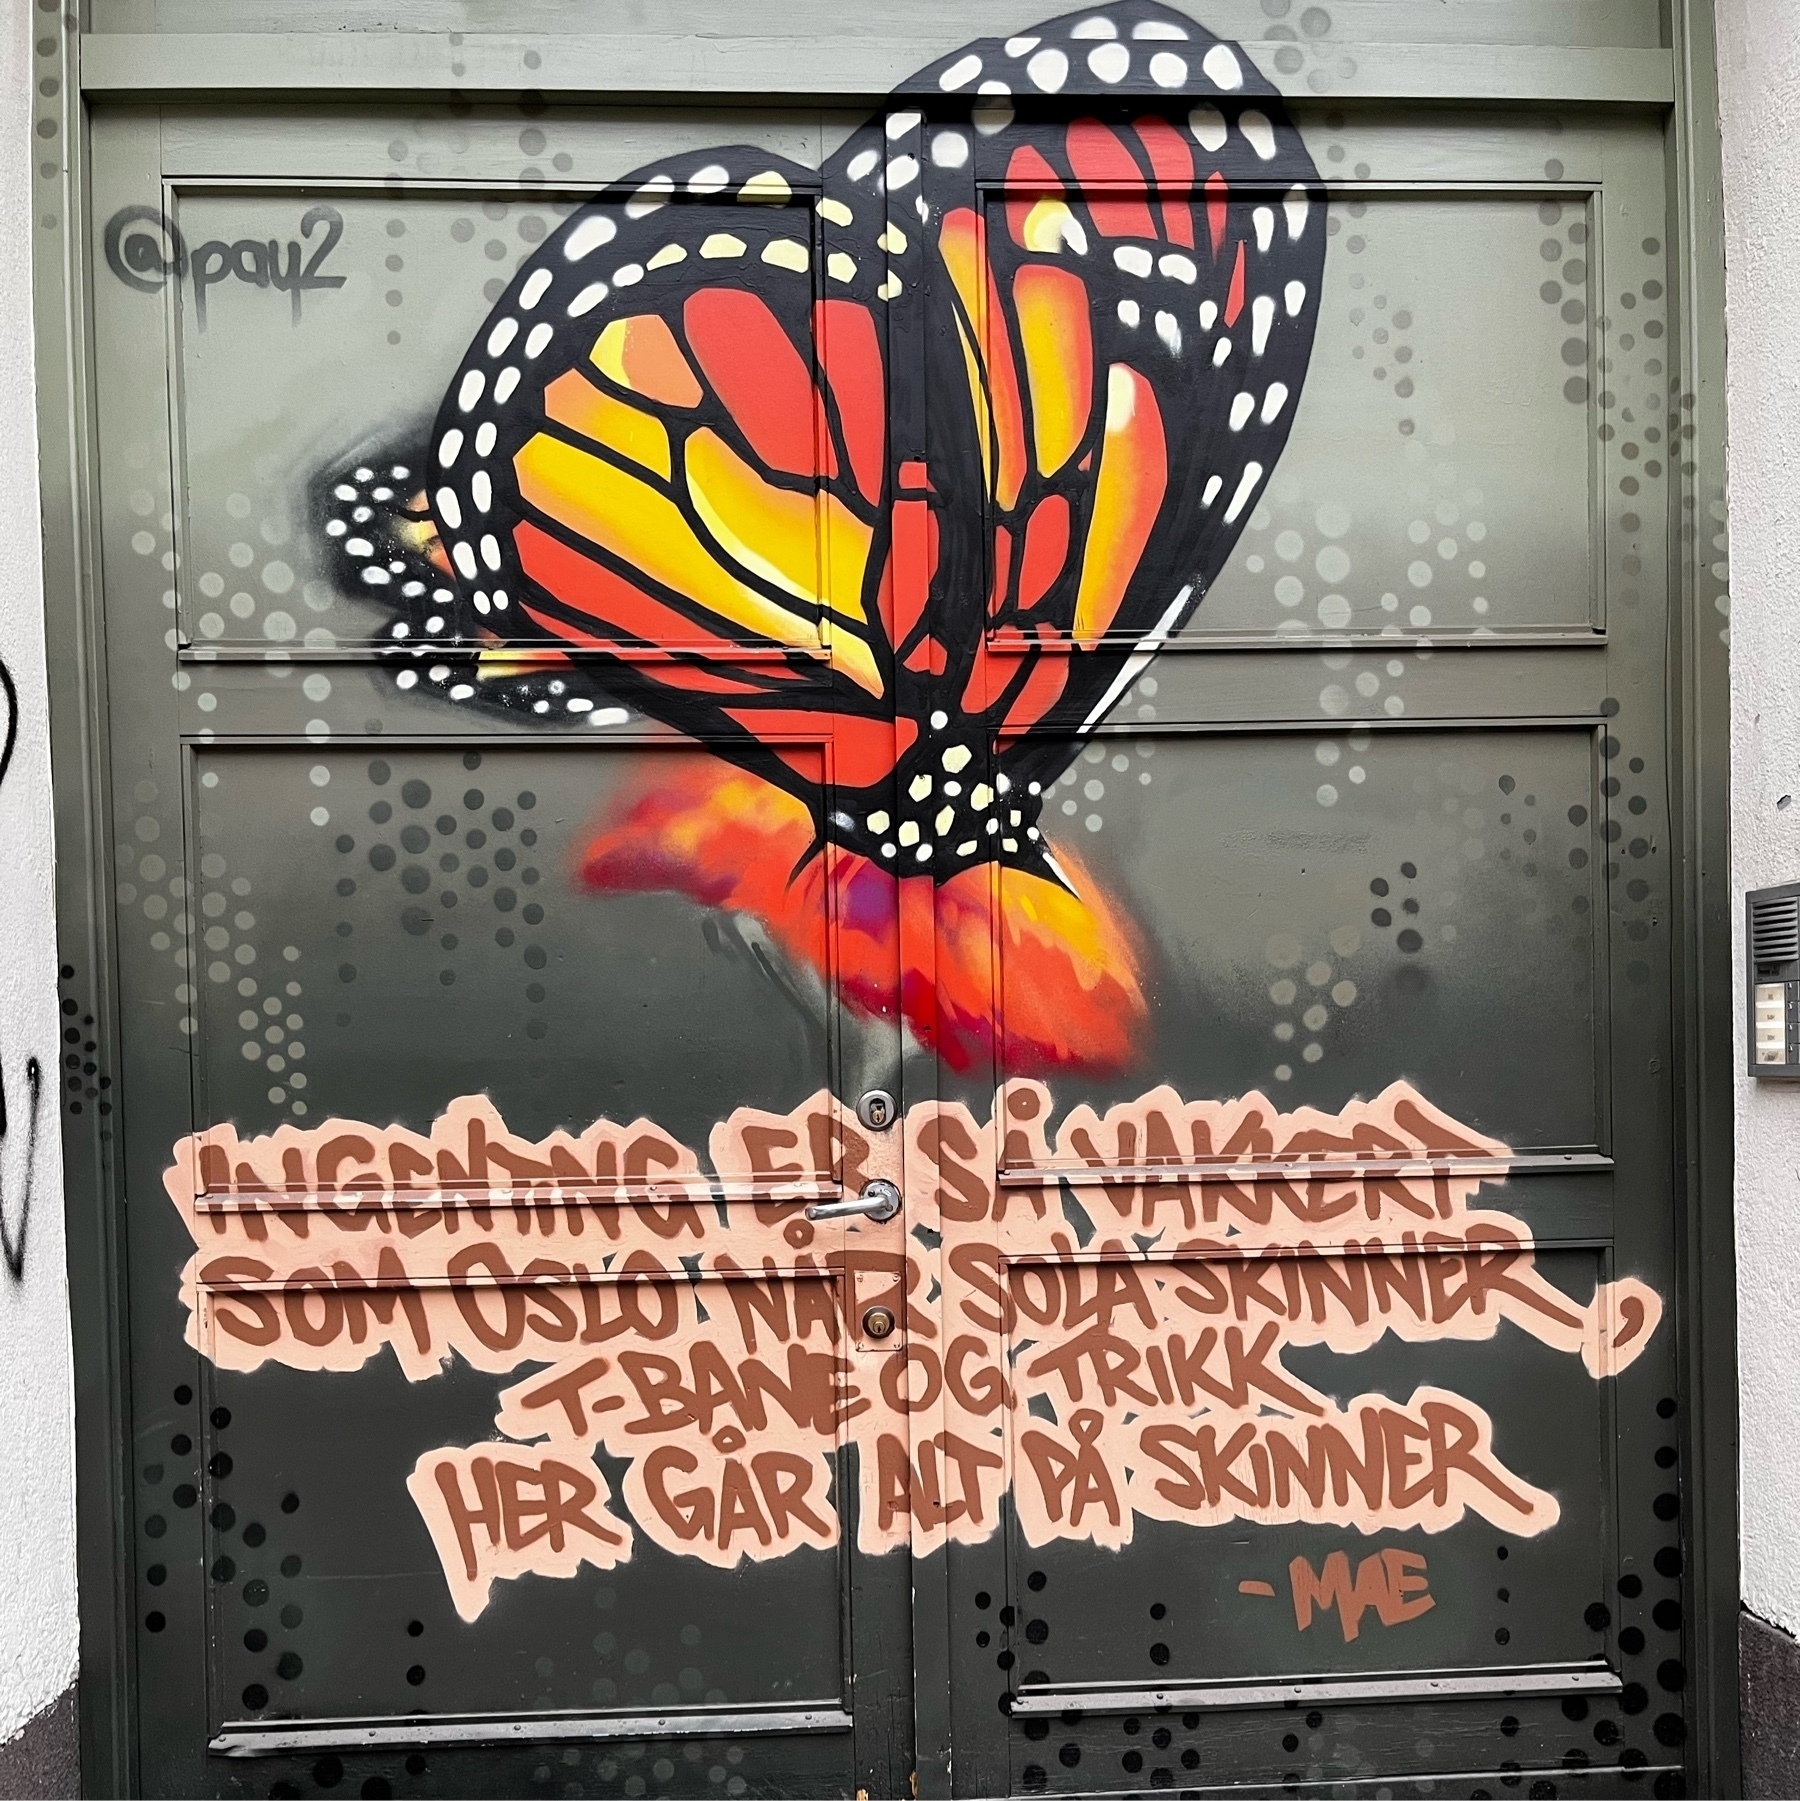 @pay2
INGENTING ER SÅ VAKKERT
SOM OSLO NÅR SOLA SKINNER,
T-BANE OG TRIKK
HER GÅR ALT PÅ SKINNER
- MAE